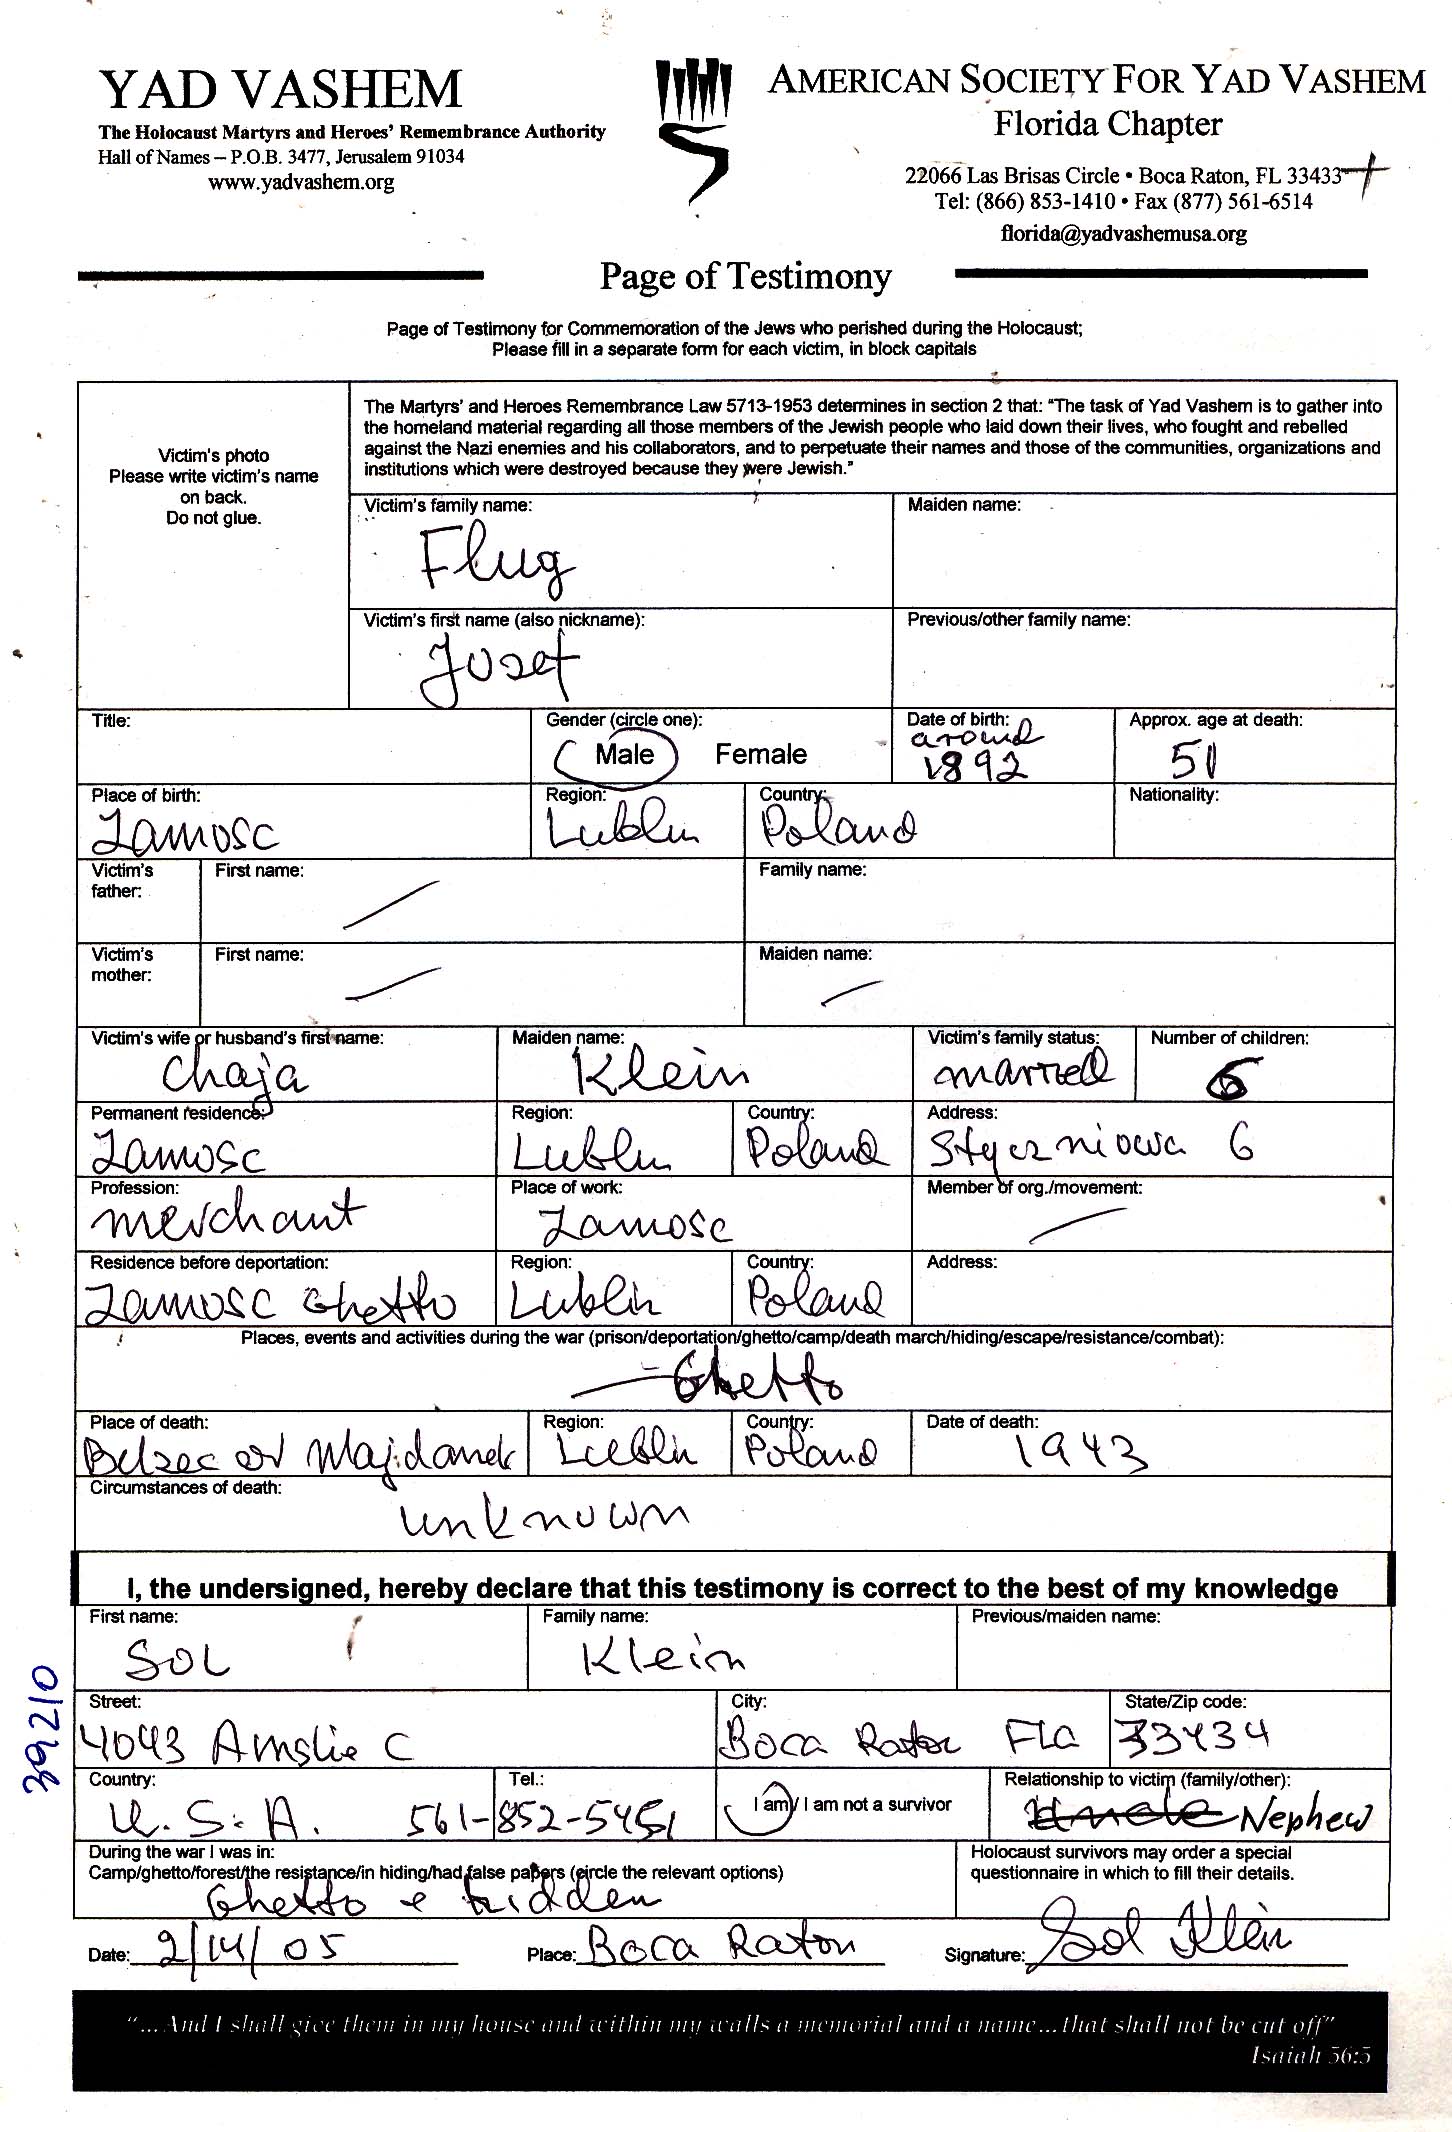 YAD VASHEM
The Holocaust Martyrs and Heroes' Remembrance Authority
Hall of Names – P.O.B. 3477, Jerusalem 91034
www.yadvashem.org
AMERICAN SOCIETY FOR YAD VASHEM
Florida Chapter
22066 Las Brisas Circle • Boca Raton, FL 33433
Tel: (866) 853-1410 • Fax (877) 561-6514
florida@yadvashemusa.org
Page of Testimony
Page of Testimony for Commemoration of the Jews who perished during the Holocaust;
Please fill in a separate form for each victim, in block capitals
Victim's photo
Please write victim's name
on back.
Do not glue.
The Martyrs' and Heroes Remembrance Law 5713-1953 determines in section 2 that: "The task of Yad Vashem is to gather into
the homeland material regarding all those members of the Jewish people who laid down their lives, who fought and rebelled
against the Nazi enemies and his collaborators, and to perpetuate their names and those of the communities, organizations and
institutions which were destroyed because they were Jewish."
Victim's family name: Maiden name:
Flug
Victim's first name (also nickname): Previous/other family name:
Jozef
Title: Gender (circle one): Date of birth: Approx. age at death:
Male Female around 1892 51
Place of birth: Region: Country: Nationality:
Zamosc Lublin Poland
Victim's father: First name: Family name:
Victim's mother: First name: Maiden name:
Victim's wife or husband's first name: Maiden name: Victim's family status: Number of children:
Chaja Klein married 6
Permanent residence: Region: Country: Address:
Zamosc Lublin Poland Styczniowa 6
Profession: Place of work: Member of org./movement:
merchant Zamosc
Residence before deportation: Region: Country: Address:
Zamosc Ghetto Lublin Poland
Places, events and activities during the war (prison/deportation/ghetto/camp/death march/hiding/escape/resistance/combat):
Ghetto
Place of death: Region: Country: Date of death:
Belzec or Majdanek Lublin Poland 1943
Circumstances of death:
unknown
I, the undersigned, hereby declare that this testimony is correct to the best of my knowledge
First name: Family name: Previous/maiden name:
SOL Klein
Street: City: State/Zip code:
4043 C Boca Raton Fla 33434
Country: Tel.: I am / I am not a survivor Relationship to victim (family/other):
U.S.A. 561-852-5451 Nephew
During the war I was in: Holocaust survivors may order a special
Camp/ghetto/forest/the resistance/in hiding/had false papers (circle the relevant options) questionnaire in which to fill their details.
Ghetto & hidden
Date: 2/14/05 Place: Boca Raton Signature: Sol Klein
39210
"...And I shall give them in my house and within my walls a memorial and a name...that shall not be cut off"
Isaiah 56:5